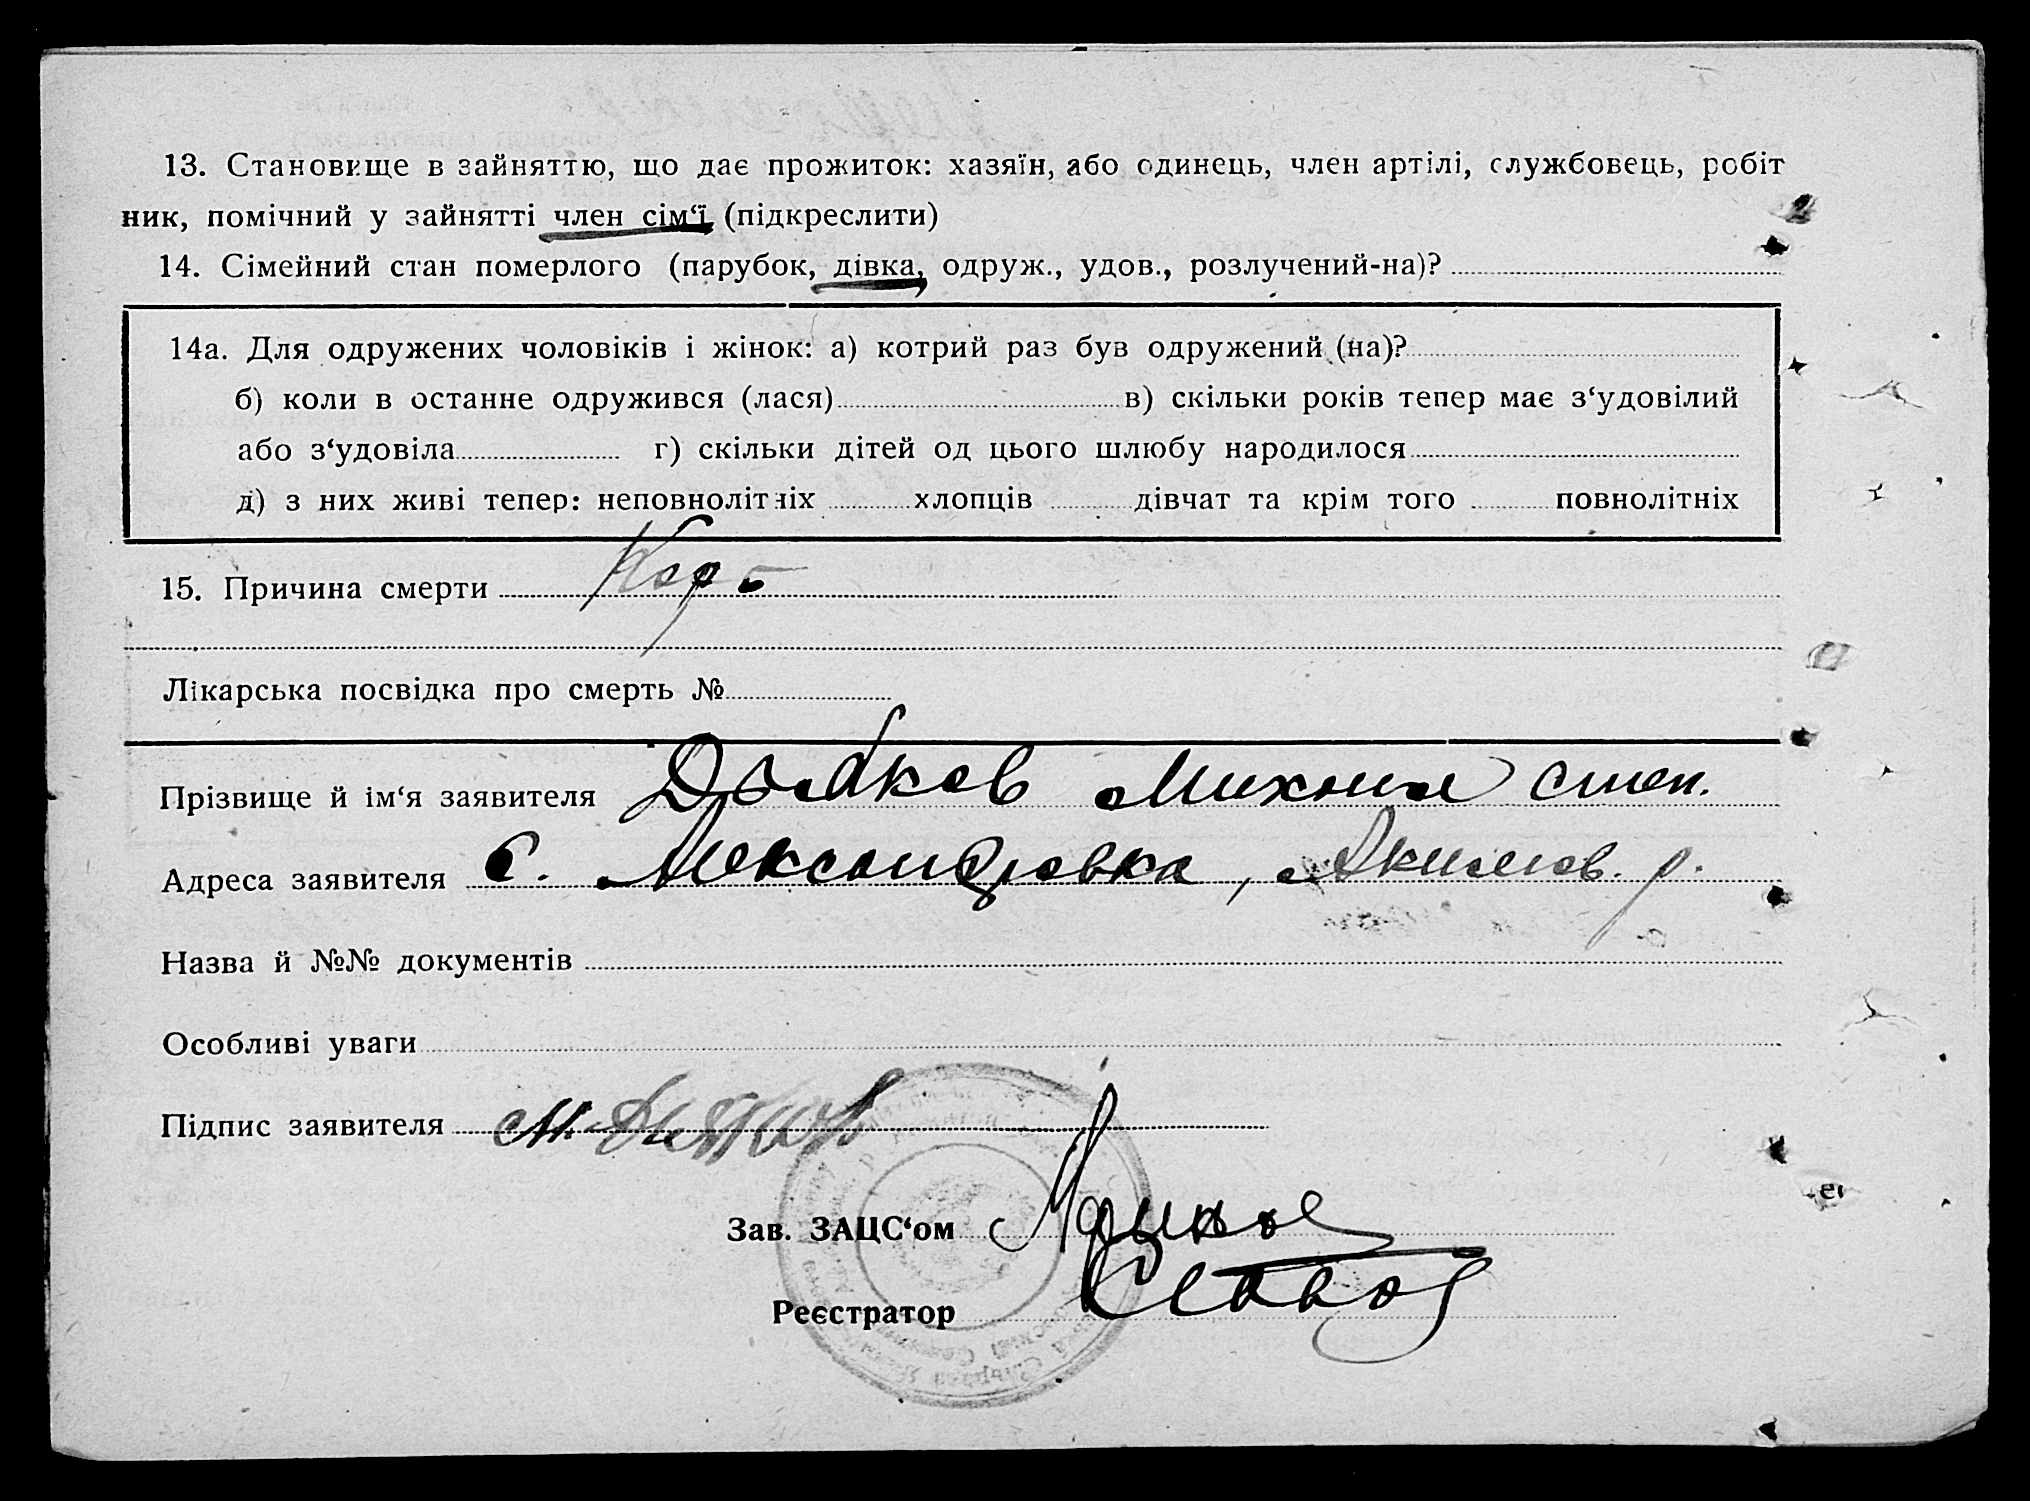 13. Становище в зайняттю, що дає прожиток: хазяїн, або одинець, член артілі, службовець, робіт
ник, помічний у зайнятті член сім‘ї (підкреслити)
14. Сімейний стан померлого (парубок, дівка, одруж., удов., розлучений-на)?
14а. Для одружених чоловіків і жінок: а) котрий раз був одружений (на)?
б) коли в останне одружився (лася) в) скільки років тепер має з‘удовілий
або з‘удовіла г) скільки дітей од цього шлюбу народилося
д) з них живі тепер: неповнолітніх хлопців дівчат та крім того повнолітніх
15. Причина смерти Корь
Лікарська посвідка про смерть №
Прізвище й ім‘я заявителя Михаил Степ.
Адреса заявителя с. Александровка, Акимов. р.
Назва й №№ документів
Особливі уваги
Підпис заявителя М.
Зав. ЗАЦС‘ом
Реєстратор